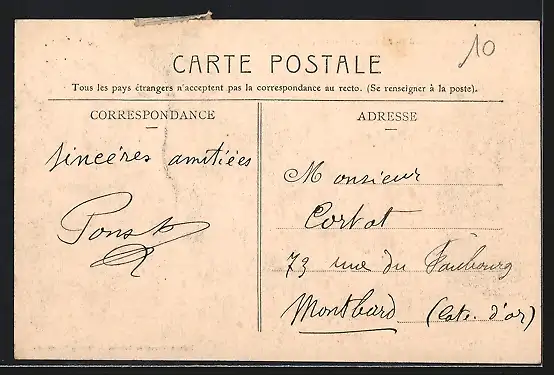 10
CARTE POSTALE
Tous les pays étrangers n'acceptent pas la correspondance au recto. (Se renseigner à la poste).
CORRESPONDANCE
sincères amitiées
ADRESSE
Monsieur
Corbat
73 rue du Faubourg
Montbard (Cote. d'or)